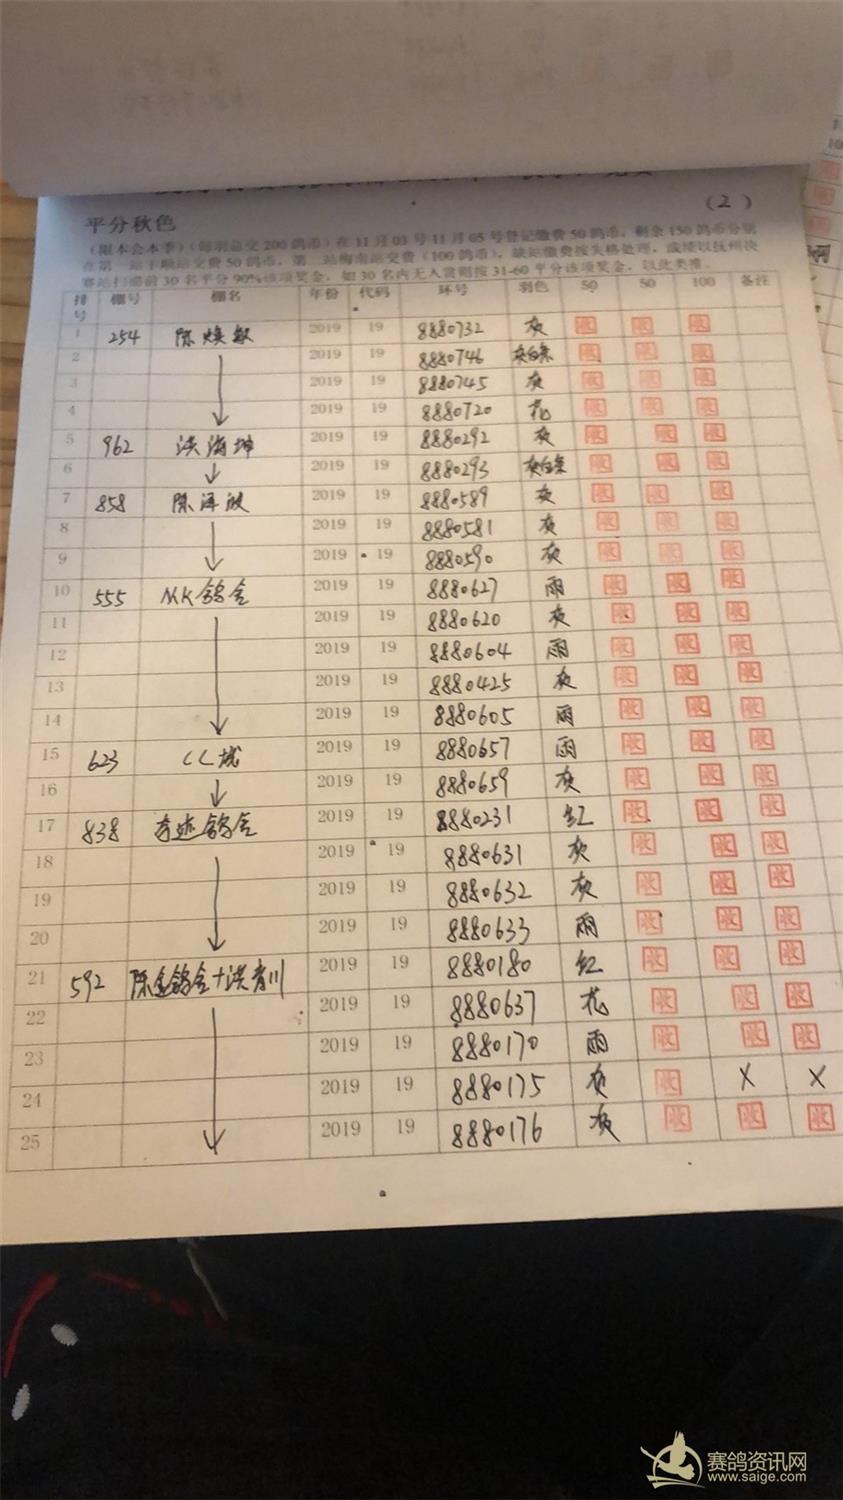 (2)
平分秋色
(限本会本季)(每羽总交200鸽币)在11月03号11月05号登记缴费50鸽币,剩余150鸽币分别
在第一站丰顺站交费50鸽币,第二站梅南站交费(100鸽币),缺站缴费按失格处理,成绩以抗州决
赛站扫描前30名平分90%该项奖金,如30名内无入赏则按31-60平分该项奖金,以此类推.
排号 棚号 棚名 年份 代码 环号 羽色 50 50 100 备注
1 254 陈焕叙 2019 19 8880732 灰 收 收 收
2 2019 19 8880746 灰白条 收 收 收
3 2019 19 8880745 灰 收 收 收
4 2019 19 8880720 花 收 收 收
5 962 洪海坤 2019 19 8880292 灰 收 收 收
6 2019 19 8880293 灰白条 收 收 收
7 858 陈泽 2019 19 8880589 灰 收 收 收
8 2019 19 8880581 灰 收 收 收
9 2019 19 8880590 灰 收 收 收
10 555 NKK鸽舍 2019 19 8880627 雨 收 收 收
11 2019 19 8880620 灰 收 收 收
12 2019 19 8880604 雨 收 收 收
13 2019 19 8880425 灰 收 收 收
14 2019 19 8880605 雨 收 收 收
15 623 CC城 2019 19 8880657 雨 收 收 收
16 2019 19 8880659 灰 收 收 收
17 838 奇迹鸽舍 2019 19 8880231 红 收 收 收
18 2019 19 8880631 灰 收 收 收
19 2019 19 8880632 灰 收 收 收
20 2019 19 8880633 雨 收 收 收
21 592 陈金鸽舍+洪育川 2019 19 8880180 红 收 收 收
22 2019 19 8880637 花 收 收 收
23 2019 19 8880170 雨 收 收 收
24 2019 19 8880175 灰 收 X X
25 2019 19 8880176 灰 收 收 收
赛鸽资讯网
www.saige.com